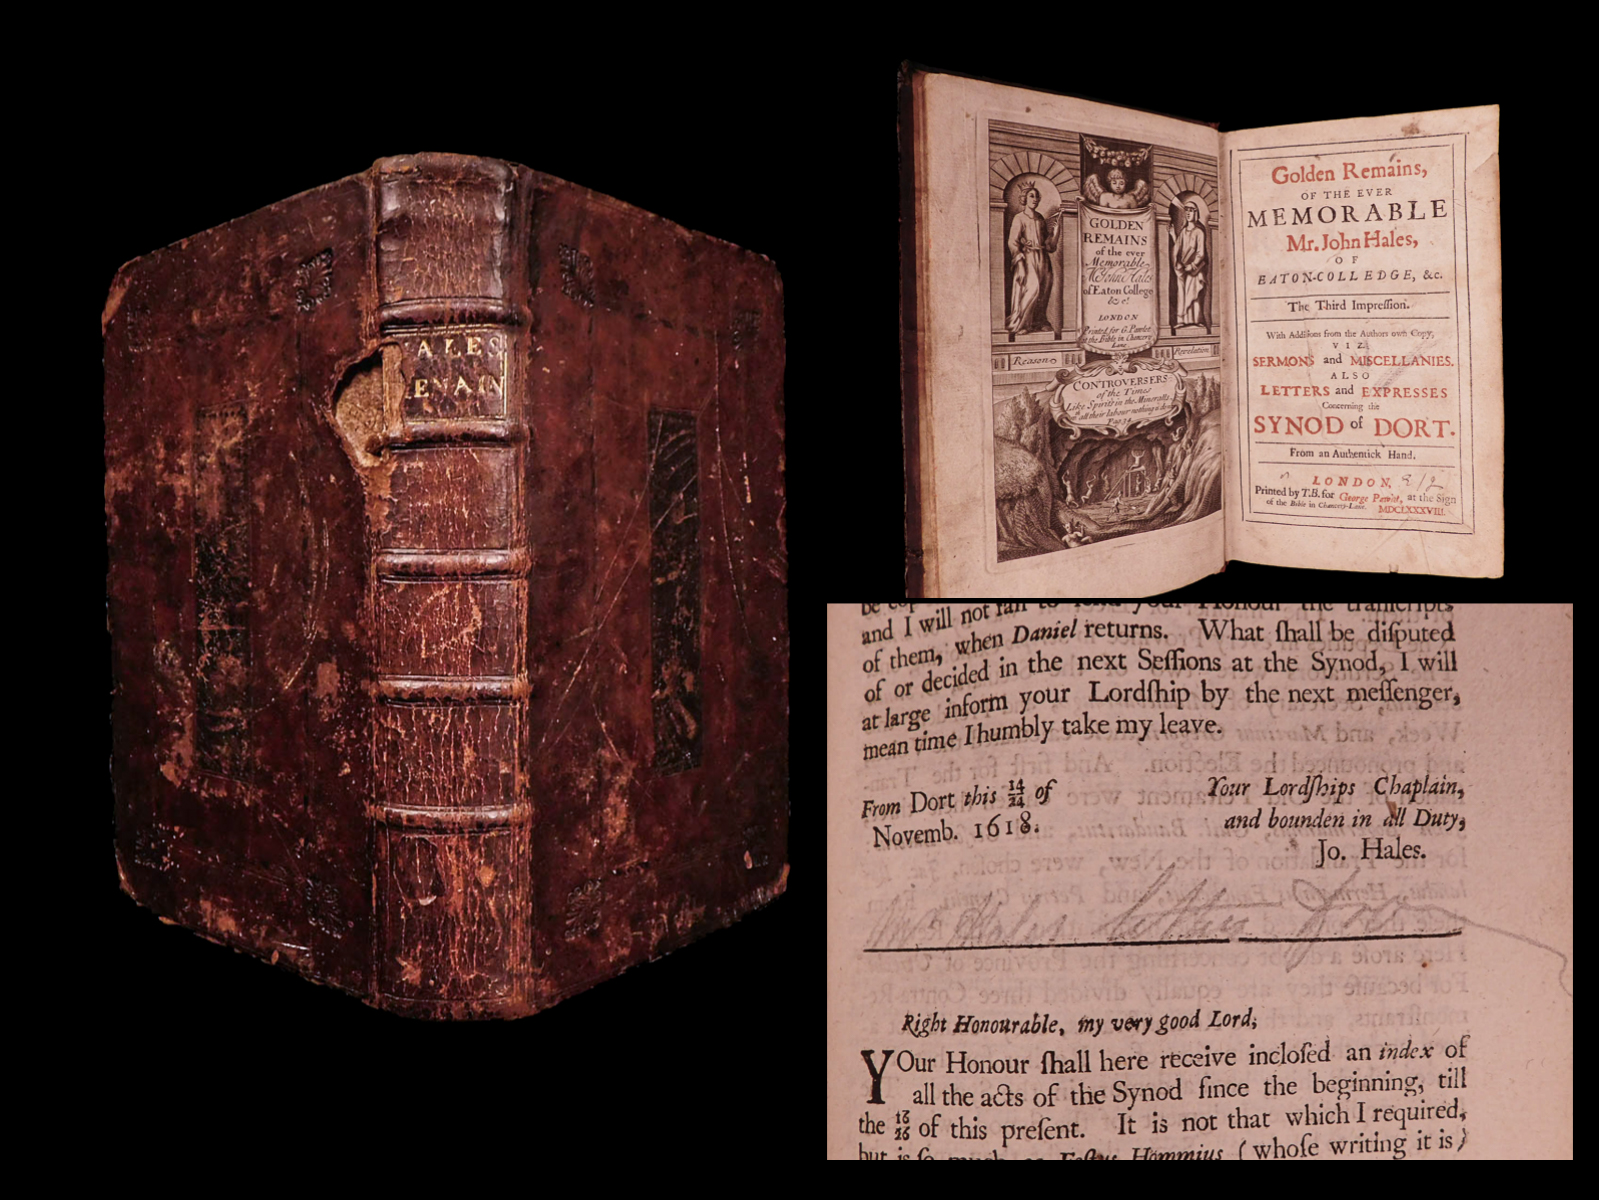 ALES
EMAIN
GOLDEN
REMAINS
of the ever
Memorable
Mr John Hales
of Eaton College
&c.
LONDON
Printed for G. Pawlet
at the Bible in Chancery
Lane
Reason
Revelation
CONTROVERSERS
of the Times
Like Spirits in the Mineralls
all their labour nothing is don
Golden Remains,
OF THE EVER
MEMORABLE
Mr. John Hales,
OF
EATON-COLLEDGE, &c.
The Third Impreſſion.
With Additions from the Authors own Copy,
VIZ.
SERMONS and MISCELLANIES.
ALSO
LETTERS and EXPRESSES
Concerning the
SYNOD of DORT.
From an Authentick Hand.
LONDON,
Printed by T.B. for George Pawlet, at the Sign
of the Bible in Chancery-Lane. MDCLXXXVIII.
and I will not fail to send your Honour the tranſcripts
of them, when Daniel returns. What ſhall be diſputed
of or decided in the next Seſſions at the Synod, I will
at large inform your Lordſhip by the next meſſenger,
mean time I humbly take my leave.
From Dort this 14/24 of
Novemb. 1618.
Your Lordſhips Chaplain,
and bounden in all Duty,
Jo. Hales.
Right Honourable, my very good Lord,
YOur Honour ſhall here receive incloſed an index of
all the acts of the Synod ſince the beginning, till
the 16/26 of this preſent. It is not that which I required,
but is ſo much as Feſtus Hommius (whoſe writing it is)